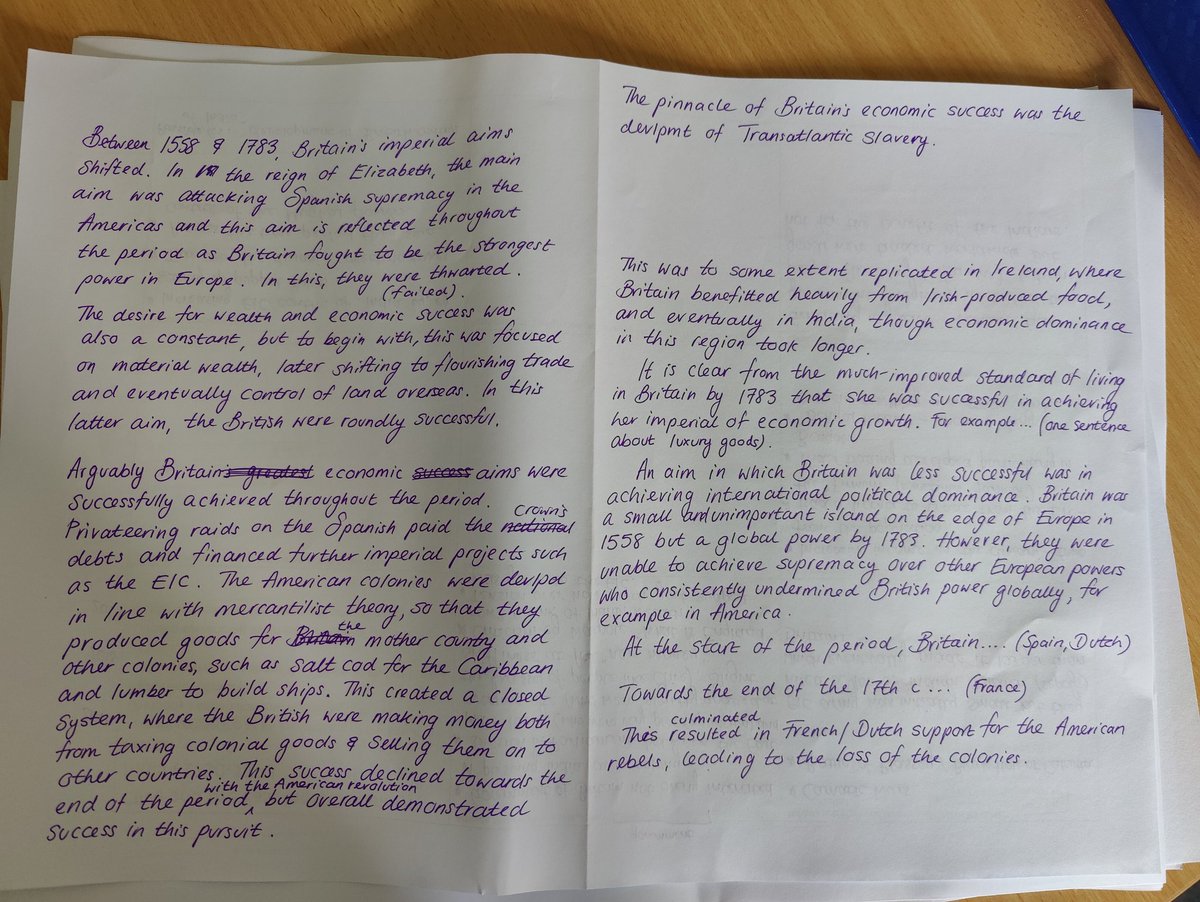 Between 1558 & 1783, Britain's imperial aims
shifted. In the reign of Elizabeth, the main
aim was attacking Spanish supremacy in the
Americas and this aim is reflected throughout
the period as Britain fought to be the strongest
power in Europe. In this, they were thwarted.
(failed).
The desire for wealth and economic success was
also a constant, but to begin with, this was focused
on material wealth, later shifting to flourishing trade
and eventually control of land overseas. In this
latter aim, the British were roundly successful.
Arguably Britain's greatest economic success aims were
successfully achieved throughout the period.
Crown's
Privateering raids on the Spanish paid the national
debts and financed further imperial projects such
as the EIC. The American colonies were devlpd
in line with mercantilist theory, so that they
the
produced goods for Britain mother country and
other colonies, such as salt cod for the Caribbean
and lumber to build ships. This created a closed
system, where the British were making money both
from taxing colonial goods & selling them on to
other countries. This success declined towards the
with the American revolution
end of the period, but overall demonstrated
success in this pursuit.
The pinnacle of Britain's economic success was the
devlpmt of Transatlantic Slavery.
This was to some extent replicated in Ireland, where
Britain benefitted heavily from Irish-produced food,
and eventually in India, though economic dominance
in this region took longer.
It is clear from the much-improved standard of living
in Britain by 1783 that she was successful in achieving
her imperial of economic growth. For example... (one sentence
about luxury goods).
An aim in which Britain was less successful was in
achieving international political dominance. Britain was
a small and unimportant island on the edge of Europe in
1558 but a global power by 1783. However, they were
unable to achieve supremacy over other European powers
who consistently undermined British power globally, for
example in America.
At the start of the period, Britain.... (Spain, Dutch)
Towards the end of the 17th c... (France)
culminated
This resulted in French/Dutch support for the American
rebels, leading to the loss of the colonies.